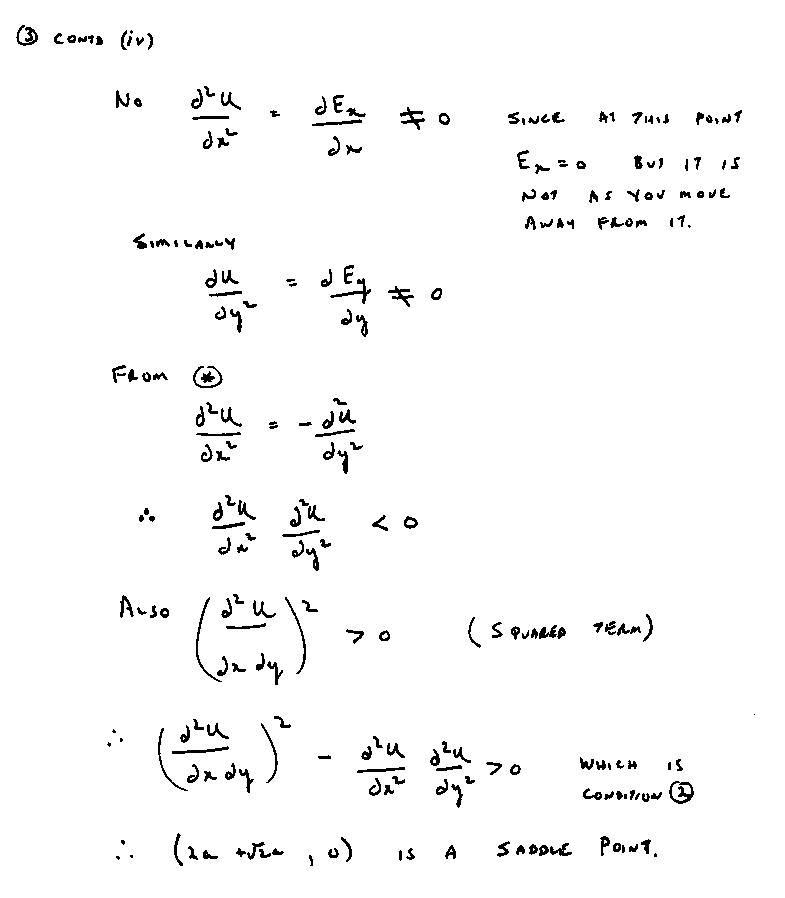 ③ CONTD (iv)
No ∂²U/∂x² = ∂Eₓ/∂x ≠ 0 SINCE AT THIS POINT
Eₓ = 0 BUT IT IS
NOT AS YOU MOVE
AWAY FROM IT.
SIMILARLY
∂U/∂y² = ∂E_y/∂y ≠ 0
FROM ⊛
∂²U/∂x² = - ∂²U/∂y²
∴ ∂²U/∂x² ∂²U/∂y² < 0
ALSO (∂²U/∂x ∂y)² > 0 (SQUARED TERM)
∴ (∂²U/∂x ∂y)² - ∂²U/∂x² ∂²U/∂y² > 0 WHICH IS
CONDITION ②
∴ (2a +√2a , 0) IS A SADDLE POINT.